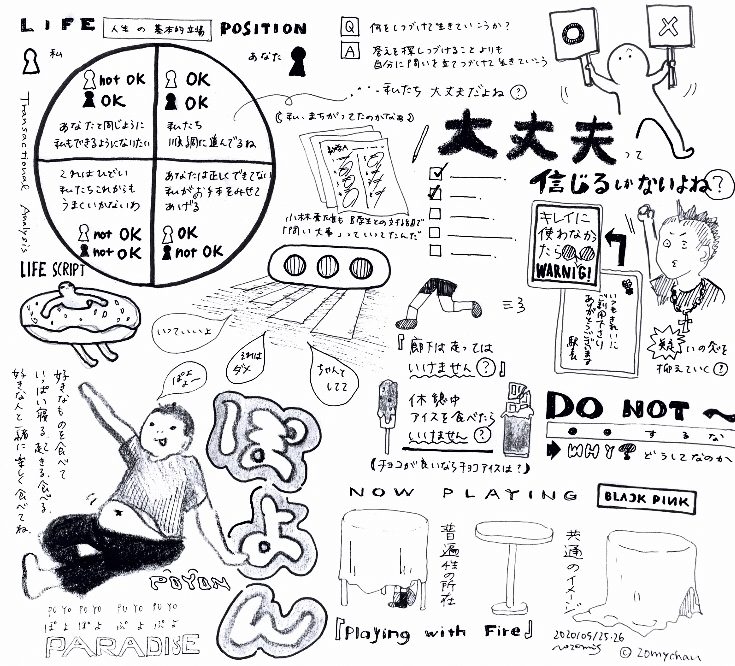 LIFE 人生の基本的立場 POSITION
私
あなた
not OK
OK
あなたと同じように
私もできるようになりたい
OK
OK
私たち
順調に進んでるね
これはひどい
私たちこれからも
うまくいかないわ
not OK
not OK
あなたは正しくできてない
私がお手本をみせて
あげる
OK
not OK
Transactional Analysis
LIFE SCRIPT
Q 何をしつづけて生きていこうか?
A 答えを探しつづけることよりも
自分に問いを立てつづけて生きていこう
私たち 大丈夫だよね?
(私、まちがってたのかなぁ)
「問い大事」っていってたんだ
大丈夫って
信じるしかないよね?
キレイに
使わなかっ
たら
WARNIG!
いつもきれいに
ご利用下さり
ありがとうございます
駅長
疑いの気を
抑えていく?
いっていいよ
それは
ダメ
ちゃんと
してて
『廊下は走っては
いけません?』
休憩中
アイスを食べたら
いけません?
(チョコが良いならチョコアイスは?)
DO NOT ~
するな
WHY? どうしてなのか
ぽよよ〜
好きなものを食べて
いっぱい寝る、起きる食べる。
好きな人と一緒に楽しく食べてね。
ぽよん
POYON
POYO POYO PUYO POYO
ぽよ ぽよ ぷよ ぷよ
PARADISE
NOW PLAYING BLACKPINK
普遍性の所在
共通のイメージ
『Playing with Fire』
2020/05/25.26
nozomis
© zomychan